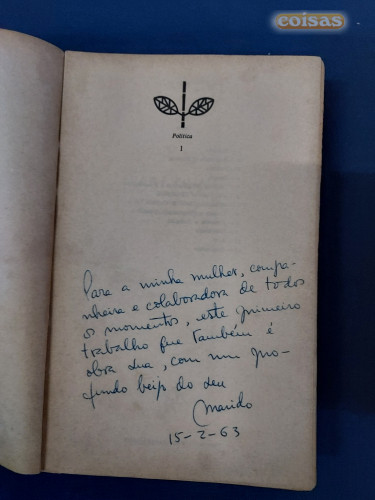 coisas
Política
1
Para a minha mulher, compa-
nheira e colaboradora de todos
os momentos, este primeiro
trabalho que também é
obra sua, com um pro-
fundo beijo do seu
Marido
15-2-63